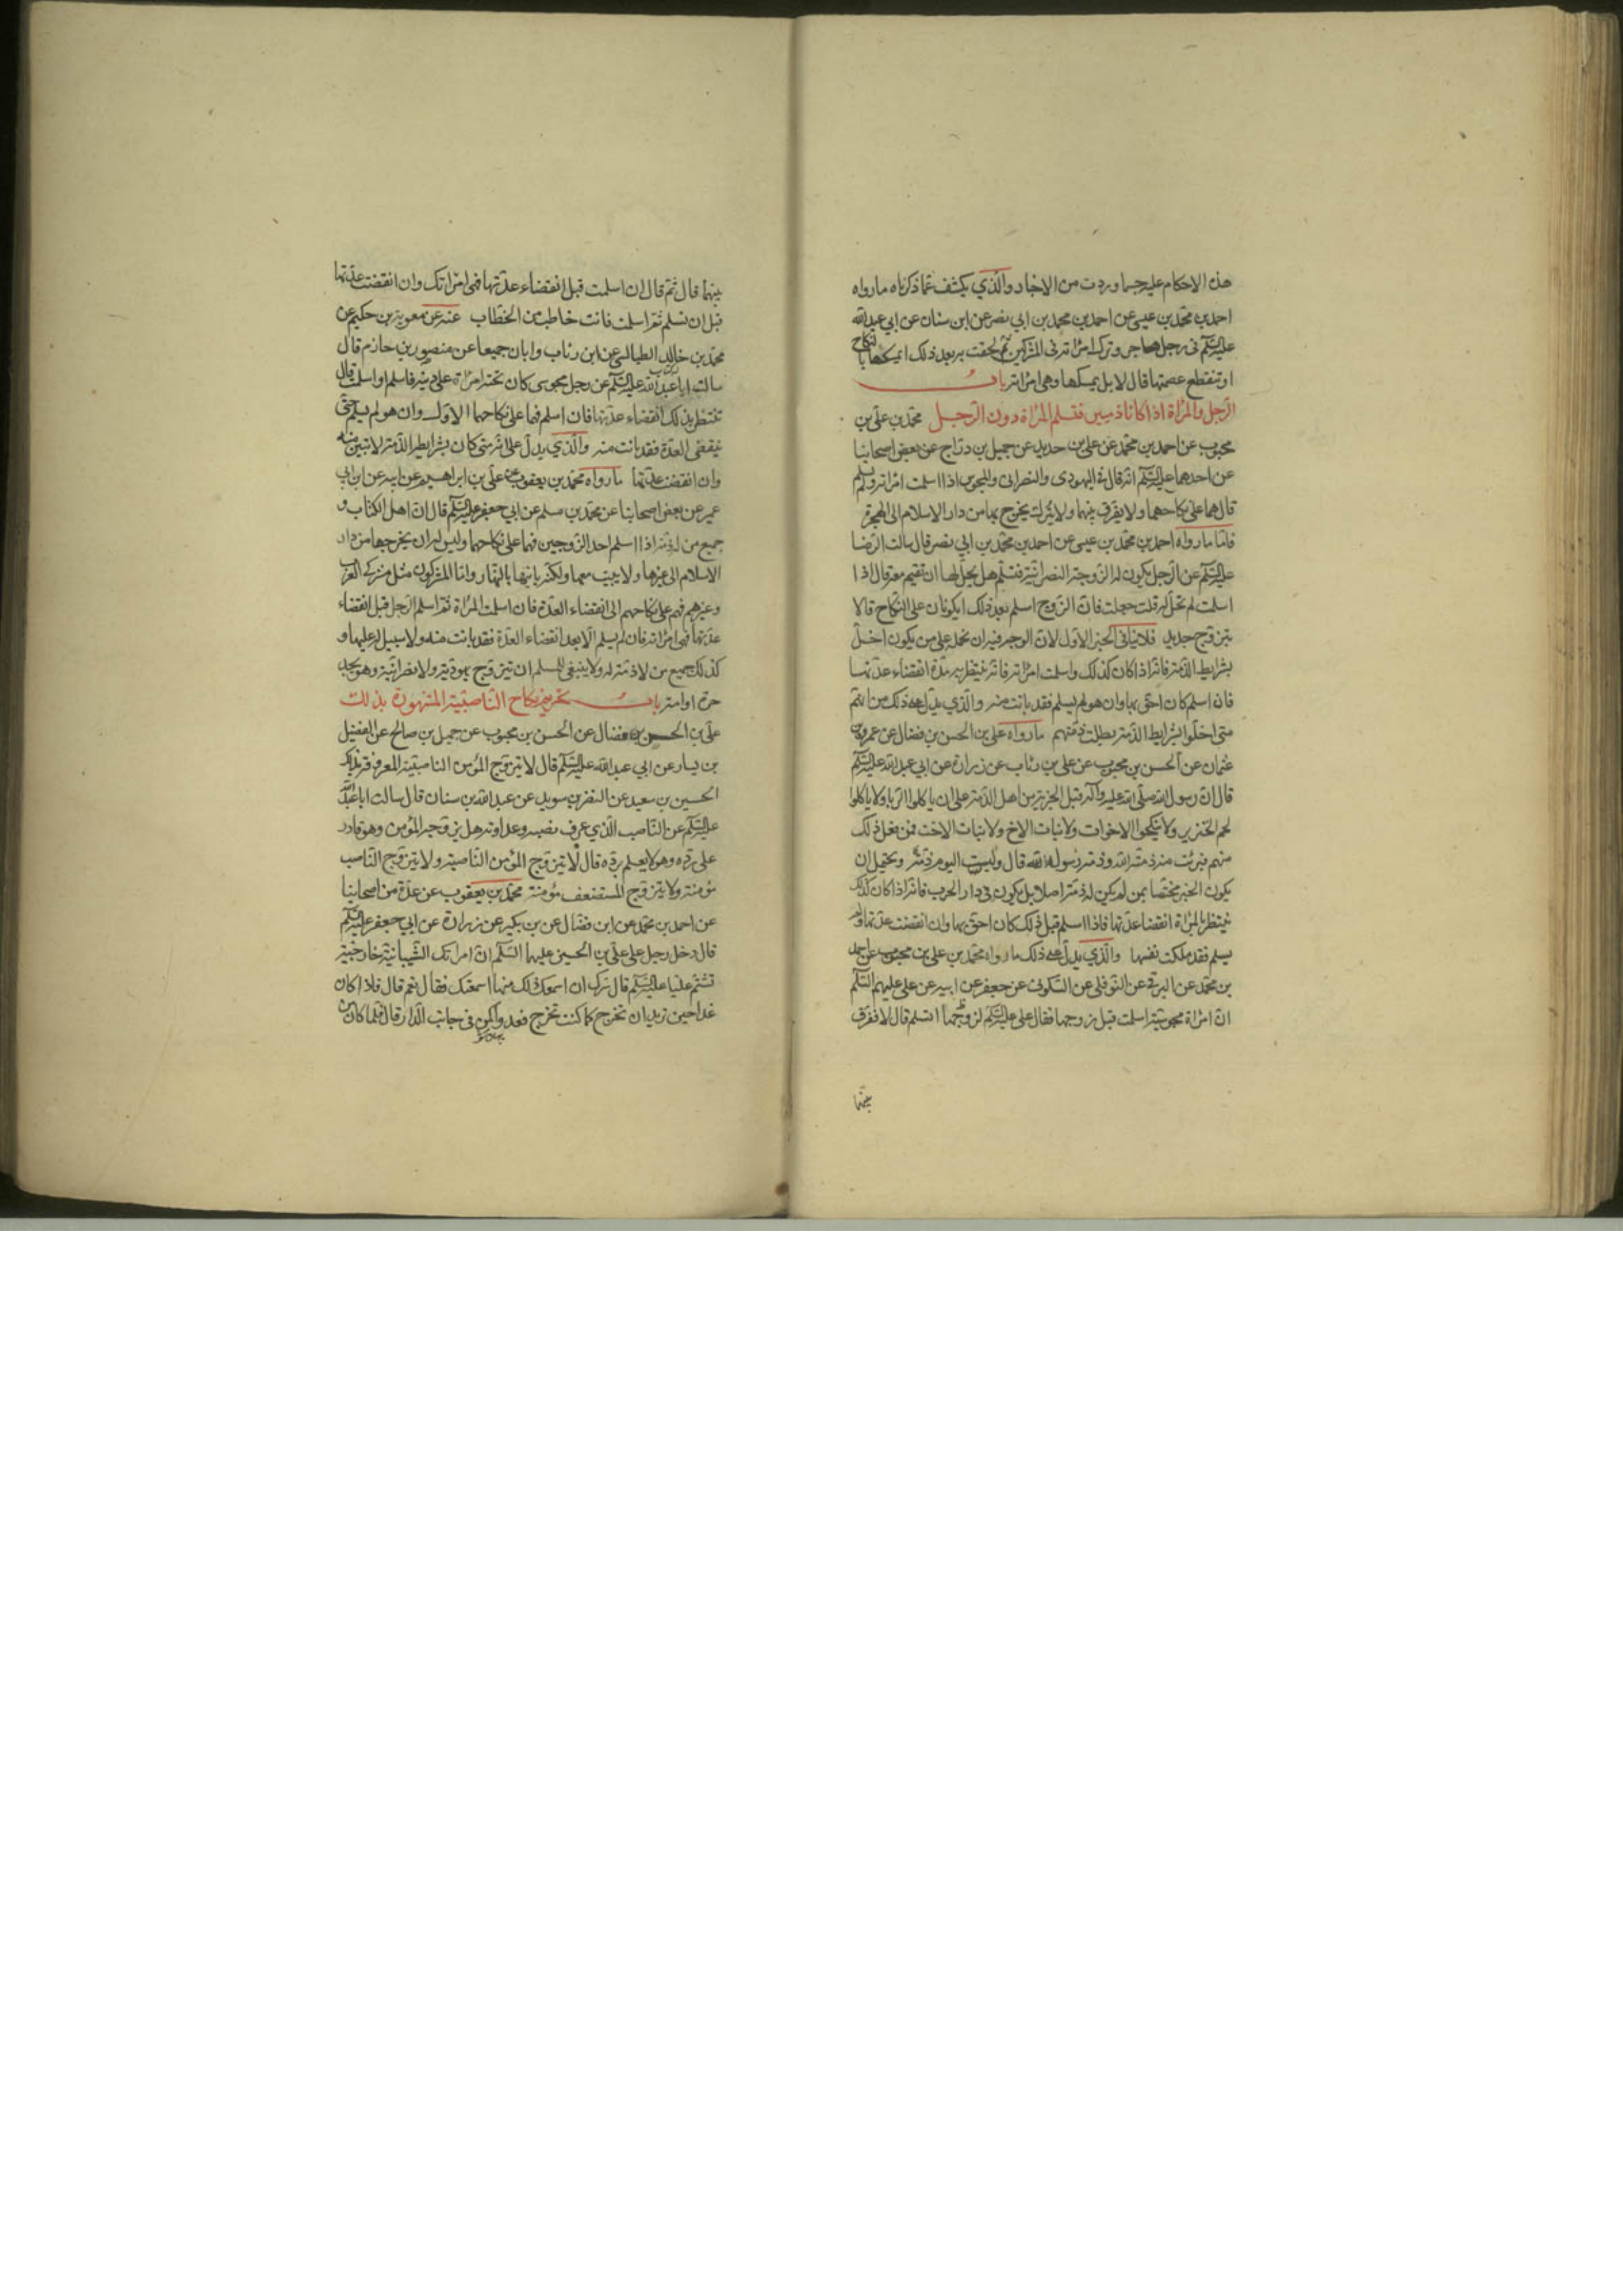 هذه الاحكام عليه حسبما وردت من الاخبار والذي يكشف عما ذكرناه ما رواه
احمد بن محمد بن عيسى عن احمد بن محمد بن ابي نصر عن ابن سنان عن ابي عبد الله
عليه السلم في رجل هاجر وترك امراته في المشركين ثم لحقت به بعد ذلك ايمسكها بالنكاح
او تنقطع عصمتها قال لا بل يمسكها وهي امراته باب
الرجل والمراة اذا كانا ذميين فتسلم المراة دون الرجل محمد بن علي بن
محبوب عن احمد بن محمد عن علي بن حديد عن جميل بن دراج عن بعض اصحابنا
عن احدهما عليه السلم انه قال في اليهودى والنصرانى والمجوسى اذا اسلمت امراته ولم يسلم
قال هما على نكاحهما ولا يفرق بينهما ولا يترك يخرج بها من دار الاسلام الى الهجرة
فاما ما رواه احمد بن محمد بن عيسى عن احمد بن محمد بن ابي نصر قال سالت الرضا
عليه السلم عن الرجل يكون له الزوجة النصرانية فتسلم هل يحل لها ان تقيم معه قال اذا
اسلمت لم تحل له قلت جعلت فان الزوج اسلم بعد ذلك ايكونان على النكاح قال لا
بتزوج جديد فلا ينافي الخبر الاول لان الوجه فيه ان نحمله على من يكون اخل
بشرايط الذمة فانه اذا كان كذلك واسلمت امراته فانه ينتظر به مدة انقضاء عدتها
فان اسلم كان احق بها وان هو لم يسلم فقد بانت منه والذي يدل على ذلك من انهم
متى اخلوا بشرايط الذمة بطلت ذمتهم ما رواه علي بن الحسن بن فضال عن عمرو بن
عثمان عن الحسن بن محبوب عن علي بن رئاب عن زرارة عن ابي عبد الله عليه السلم
قال ان رسول الله صلى الله عليه وآله قبل الجزية من اهل الذمة على ان لا ياكلوا الربا ولا ياكلوا
لحم الخنزير ولا ينكحوا الاخوات ولا بنات الاخ ولا بنات الاخت فمن فعل ذلك
منهم فبرئت منه ذمة الله وذمة رسول الله قال وليست اليوم ذمة ويحتمل ان
يكون الخبر مختصا بمن لم يكن له ذمة اصلا بل يكون في دار الحرب فانه اذا كان كذلك
ينتظر بالمراة انقضاء عدتها فاذا اسلم قبل ذلك كان احق بها وان انقضت عدتها ولم
يسلم فقد ملكت نفسها والذي يدل على ذلك ما رواه محمد بن علي بن محبوب عن احمد
بن محمد عن البرقى عن النوفلي عن السكونى عن جعفر عن ابيه عن علي عليهم السلم
ان امراة مجوسية اسلمت قبل زوجها فقال علي عليه السلم لزوجها اتسلم قال لا ففرق
بينهما
بينهما قال ثم قال ان اسلمت قبل انقضاء عدتها فهي امراتك وان انقضت عدتها
قبل ان تسلم ثم اسلمت فانت خاطب من الخطاب عنه عن معوية بن حكيم عن
محمد بن خالد الطيالسى عن ابن رئاب وابان جميعا عن منصور بن حازم قال
سالت ابا عبد الله عليه السلم عن رجل مجوسى كان تحته امراة على دينه فاسلم او اسلمت قال
تنتظر بذلك انقضاء عدتها فان اسلم فهما على نكاحهما الاول وان هو لم يسلم حتى
ينقضى العدة فقد بانت منه والذي يدل على انه متى كان بشرايط الذمة لا تبين منه
وان انقضت عدتها ما رواه محمد بن يعقوب عن علي بن ابراهيم عن ابيه عن ابن ابي
عمير عن بعض اصحابنا عن محمد بن مسلم عن ابي جعفر عليه السلم قال ان اهل الكتاب و
جميع من له ذمة اذا اسلم احد الزوجين فهما على نكاحهما وليس له ان يخرجها من دار
الاسلام الى غيرها ولا يبيت معها ولكنه ياتيها بالنهار واما المشركون مثل مشركى العرب
وغيرهم فهم على نكاحهم الى انقضاء العدة فان اسلمت المراة ثم اسلم الرجل قبل انقضاء
عدتها فهي امراته فان لم يسلم الا بعد انقضاء العدة فقد بانت منه ولا سبيل له عليها و
كذلك جميع من لا ذمة له ولا ينبغي للمسلم ان يتزوج يهودية ولا نصرانية وهو يجد
حرة او امة باب تحريم نكاح الناصبية المشهورة بذلك
علي بن الحسن بن فضال عن الحسن بن محبوب عن جميل بن صالح عن الفضيل
بن يسار عن ابي عبد الله عليه السلم قال لا يتزوج المؤمن الناصبية المعروفة بذلك
الحسين بن سعيد عن النضر بن سويد عن عبد الله بن سنان قال سالت ابا عبد الله
عليه السلم عن الناصب الذي عرف نصبه وعداوته هل يزوجه المؤمن وهو قادر
على رده وهو لا يعلم برده قال لا يتزوج المؤمن الناصبة ولا يتزوج الناصب
مؤمنة ولا يتزوج المستضعف مؤمنة محمد بن يعقوب عن عدة من اصحابنا
عن احمد بن محمد عن ابن فضال عن بن بكير عن زرارة عن ابي جعفر عليه السلم
قال دخل رجل على علي بن الحسين عليهما السلم ان امراتك الشيبانية خارجية
تشتم عليا عليه السلم فان سرك ان اسمعك ذلك منها اسمعتك فقال نعم قال فاذا كان
غدا حين تريد ان تخرج كما كنت تخرج فعد واكمن في جانب الدار قال فلما كان من